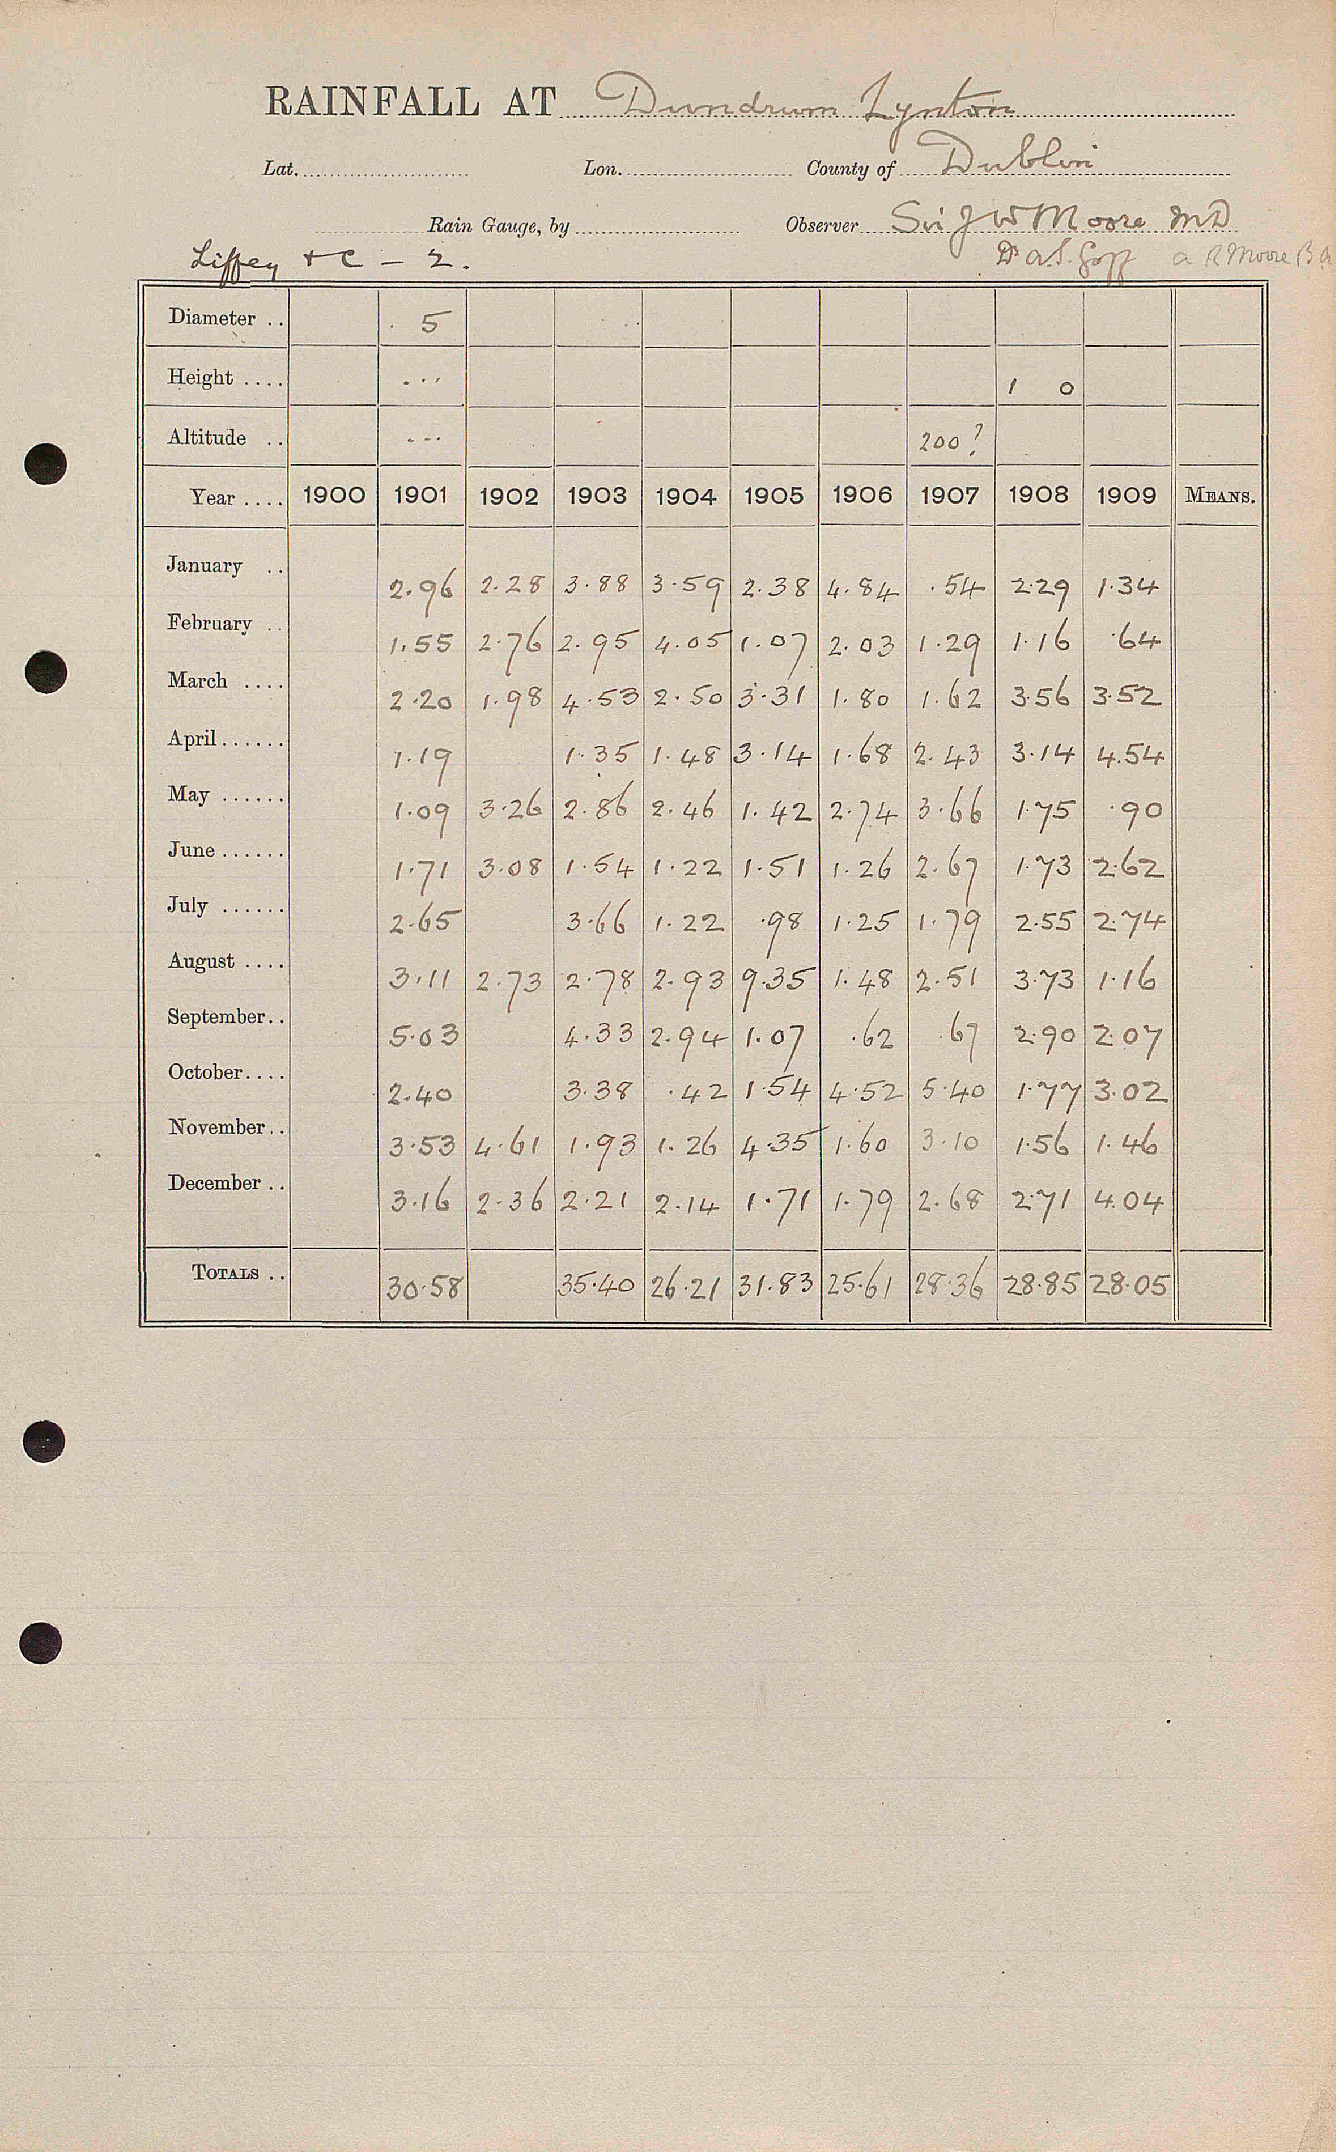 RAINFALL AT Dundrum Lynton
Lat. Lon. County of Dublin
Rain Gauge, by Observer Sir J W Moore MD
Liffey & C - 2. Dr A.S. Goff a R Moore B A
Diameter .. 5
Height .... ... 1 0
Altitude .. --- 200?
Year .... 1900 1901 1902 1903 1904 1905 1906 1907 1908 1909 MEANS.
January .. 2.96 2.28 3.88 3.59 2.38 4.84 .54 2.29 1.34
February .. 1.55 2.76 2.95 4.05 1.07 2.03 1.29 1.16 .64
March .... 2.20 1.98 4.53 2.50 3.31 1.80 1.62 3.56 3.52
April...... 1.19 1.35 1.48 3.14 1.68 2.43 3.14 4.54
May ...... 1.09 3.26 2.86 2.46 1.42 2.74 3.66 1.75 .90
June...... 1.71 3.08 1.54 1.22 1.51 1.26 2.67 1.73 2.62
July ...... 2.65 3.66 1.22 .98 1.25 1.79 2.55 2.74
August .... 3.11 2.73 2.78 2.93 9.35 1.48 2.51 3.73 1.16
September.. 5.03 4.33 2.94 1.07 .62 .67 2.90 2.07
October.... 2.40 3.38 .42 1.54 4.52 5.40 1.77 3.02
November.. 3.53 4.61 1.93 1.26 4.35 1.60 3.10 1.56 1.46
December .. 3.16 2.36 2.21 2.14 1.71 1.79 2.68 2.71 4.04
TOTALS .. 30.58 35.40 26.21 31.83 25.61 28.36 28.85 28.05